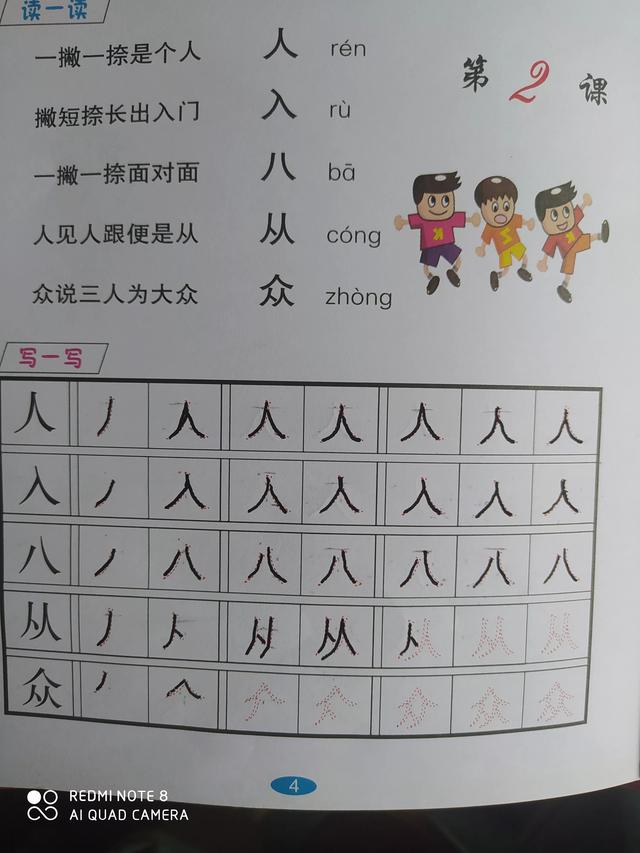 读一读
一撇一捺是个人 人 rén
第2课
撇短捺长出入门 入 rù
一撇一捺面对面 八 bā
人见人跟便是从 从 cóng
众说三人为大众 众 zhòng
写一写
人 丿 人 人 人 人 人 人
入 丿 入 入 入 入 入 入
八 丿 八 八 八 八 八 八
从 丿
众 丿 𠆢
4
REDMI NOTE 8
AI QUAD CAMERA